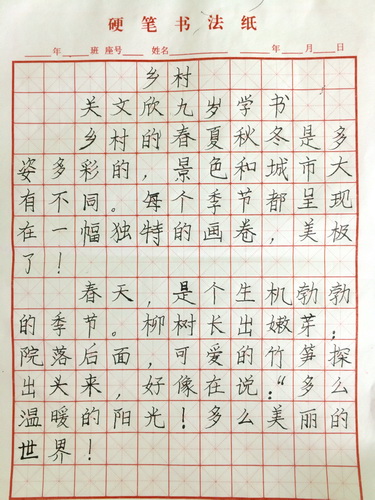 硬笔书法纸
年 班 座号 姓名 年 月 日
乡村
关文欣九岁学书
乡村的春夏秋冬是多
姿多彩的，景色和城市大
有不同。每个季节都呈现
在一幅独特的画卷，美极
了！
春天，是个生机勃勃
的季节。柳树长出嫩芽；
院落后面，可爱的竹笋探
出头来，好像在说：“多么
温暖的阳光！多么美丽的
世界！